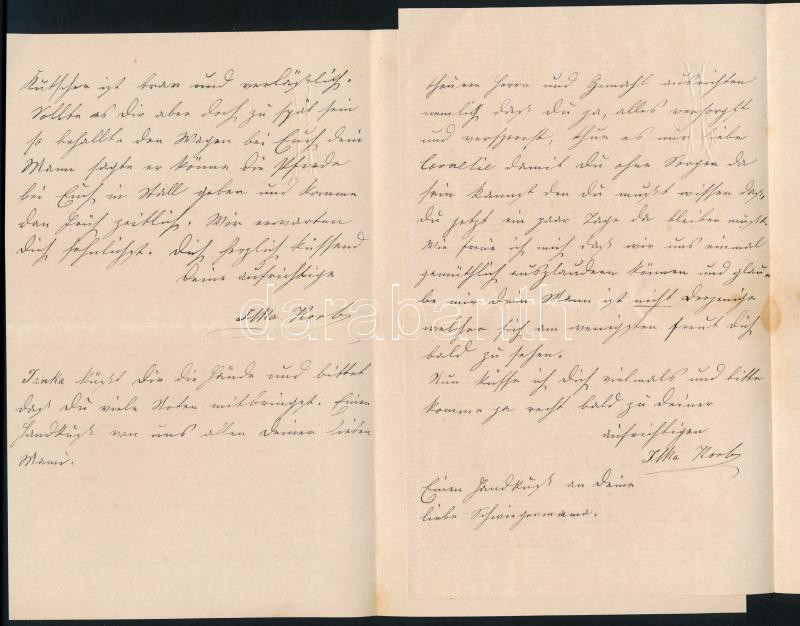 Kutscher ist brav und verläßlich.
Sollte es Dir aber doch zu spät sein
so behallte den Wagen bei Euch dein
Mann sagte er könne die Pferde
bei Euch in Stall geben und komme
dan früh zeitlich. Wir erwarten
Dich sehnlichst. Dich herzlich küssend
Deine aufrichtige
Ilka Korb
Irnka küßt Dir die Hände und bittet
daß Du viele Noten mitbringst. Einen
Handkuß von uns allen Deiner lieben
Mami.
theuren Herrn und Gemahl ausrichten
nemlich daß Du ja, alles versorgst
und versperrst, thue es nur liebe
Cornelie damit Du ohne Sorgen da
sein kannst den Du mußt wissen daß,
Du jetzt ein paar Tage da bleiben mußt.
Wie freue ich mich daß wir uns einmal
gemüthlich ausplaudern können und glau-
be mir Dein Mann ist nicht derjenige
welcher sich am wenigsten freut Dich
bald zu sehen.
Nun küsse ich Dich vielmals und bitte
komme ja recht bald zu Deiner
aufrichtigen
Ilka Korb
Einen Handkuß an Deine
liebe Schwiegermama.
darabanth